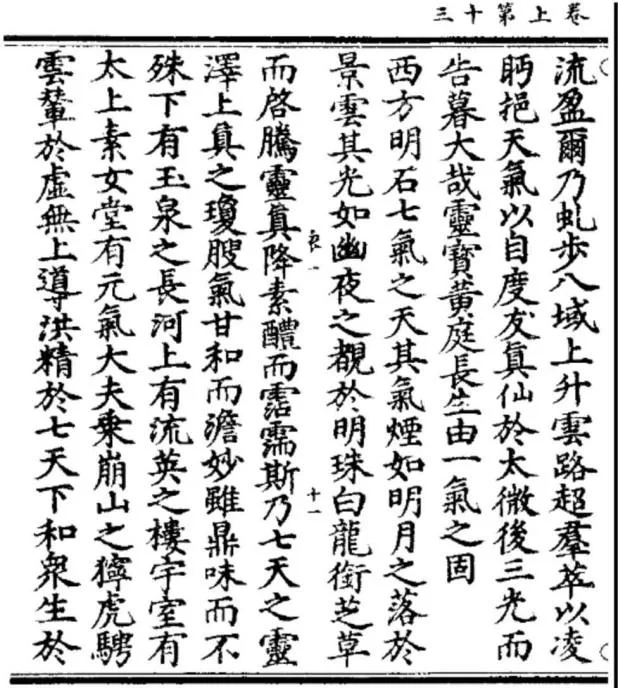 卷上第十三
流盈爾乃虬步八域上升雲路超羣萃以凌
眄挹天氣以自度友真仙於太微後三光而
告暮大哉靈寶黃庭長生由一氣之固
西方明石七氣之天其氣煙如明月之落於
景雲其光如幽夜之覩於明珠白龍銜芝草
一 十一
而啓騰靈真降素醴而霑濡斯乃七天之靈
澤上真之瓊膄氣甘和而澹妙雖鼎味而不
殊下有玉泉之長河上有流英之樓宇室有
太上素女堂有元氣大夫乘崩山之獰虎騁
雲輦於虛無上導洪精於七天下和衆生於